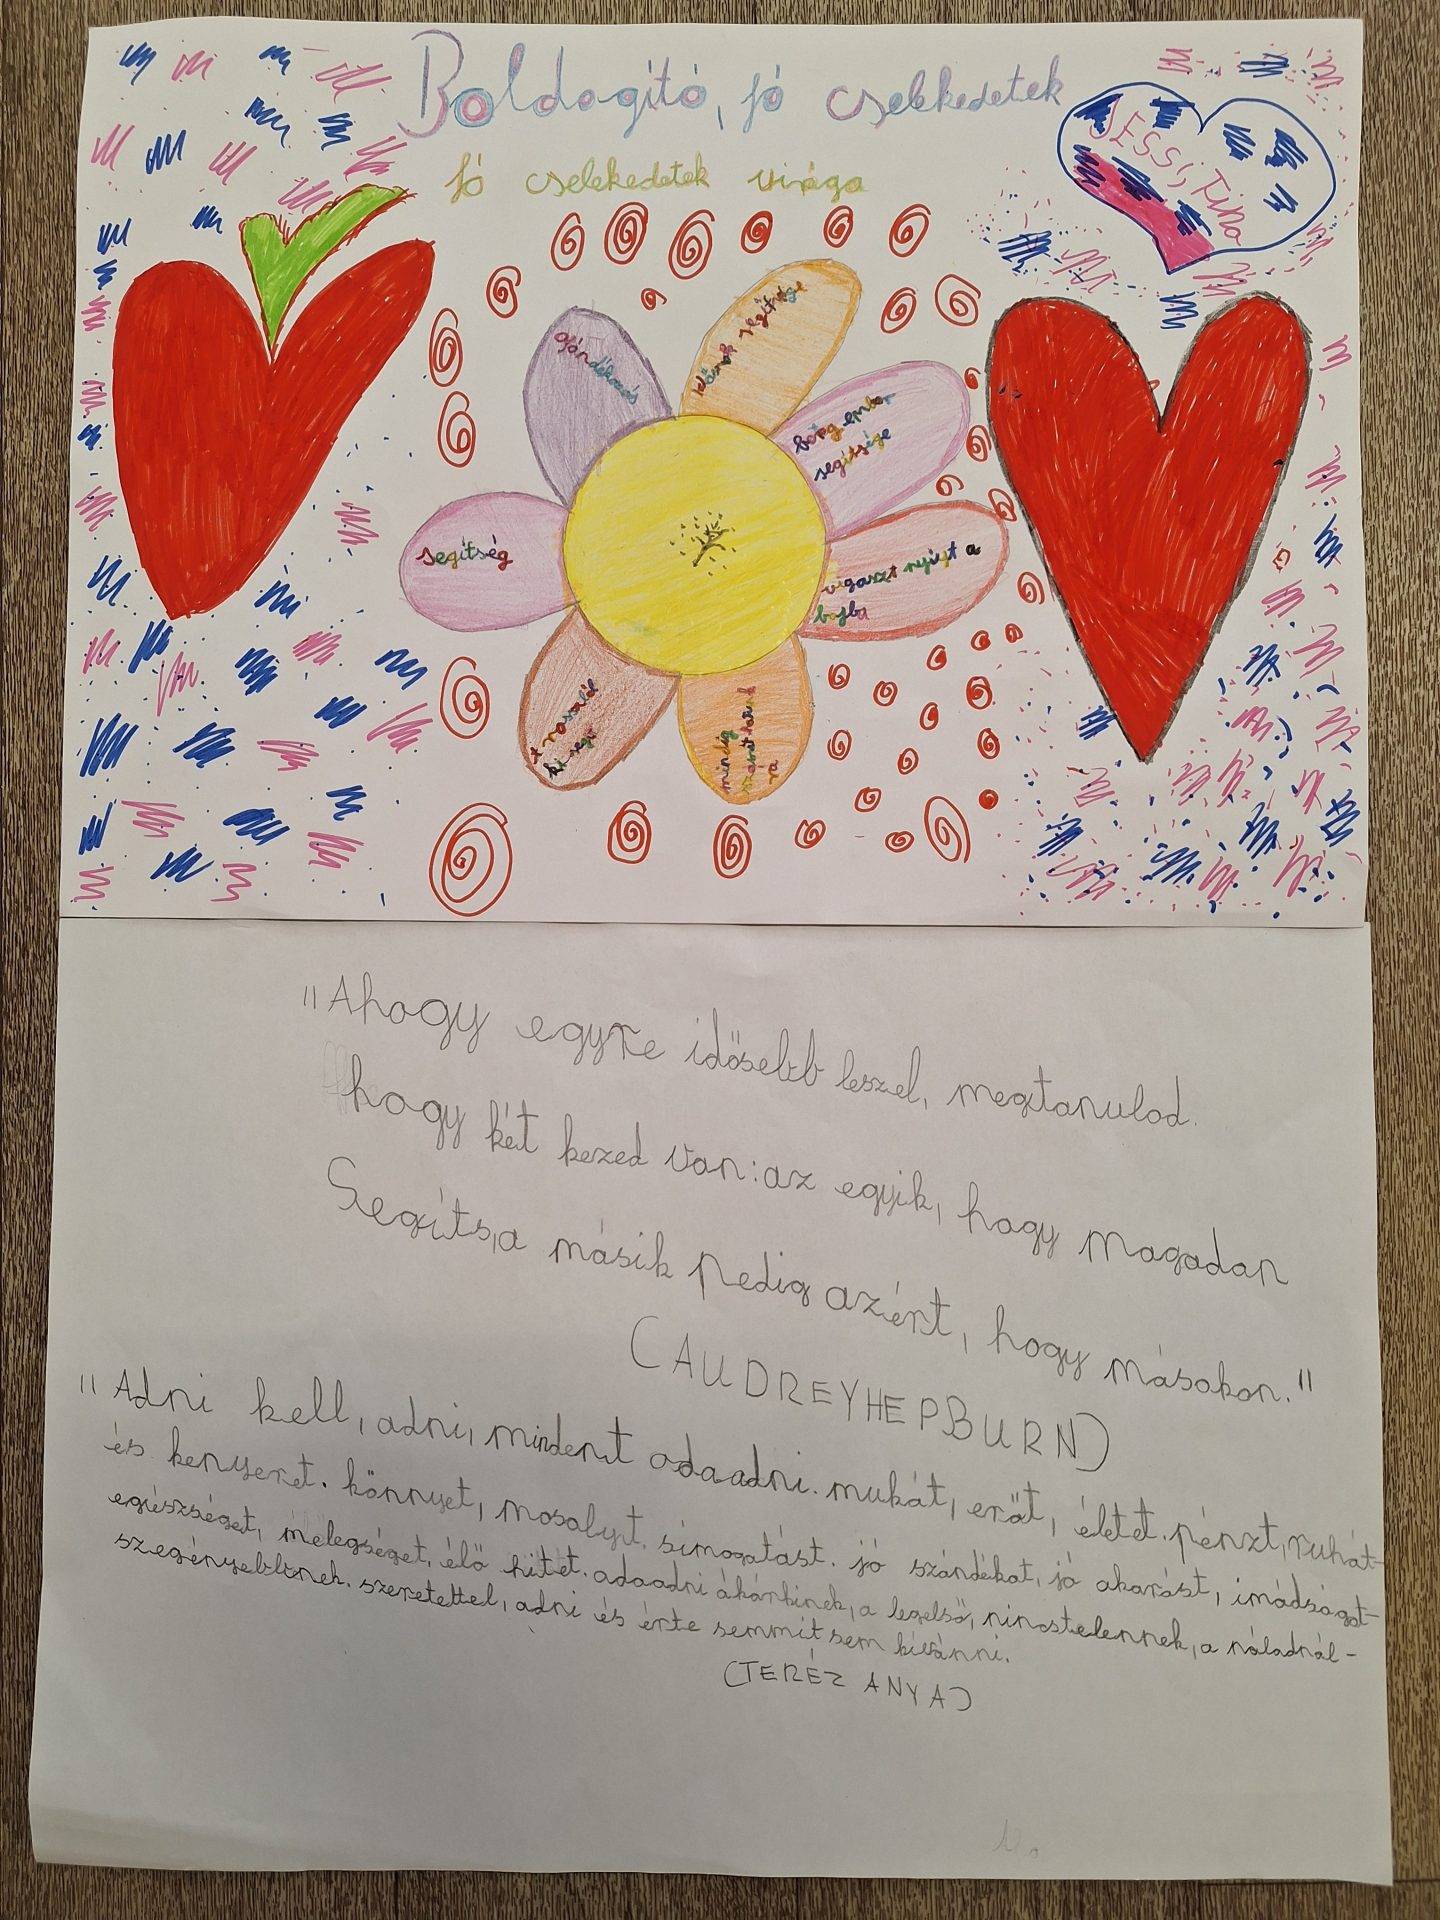 Boldogító, jó cselekedetek
Jó cselekedetek virága
JESSI, Tina
Ajándékozás
Idősek segítsége
beteg ember
segítsége
vigaszt nyújt a
bajba
mindig
számíthatunk
rá
a család
ki segí
segítség
"Ahogy egyre idősebb leszel, megtanulod.
hogy két kezed van: az egyik, hogy magadan
Segíts,a másik pedig azért, hogy másokon."
(AUDREYHEPBURN)
"Adni kell, adni, mindent odaadni. mukát, erőt, életet. pénzt, ruhát-
és kenyeret. könnyet, mosolyt. simogatást. jó szándékot, jó akarást, imádságot-
egészséget, melegséget, élő hitet. odaadni ákárkinek, a legelső, nincstelennek, a náladnál-
szegényebbnek. szeretettel, adni és érte semmit sem kivánni.
(TERÉZ ANYA)